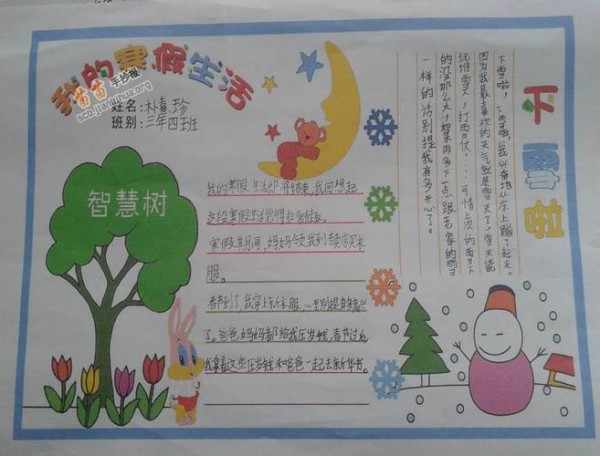 我的寒假生活
苗苗手抄报
姓名:朴熹珍
班别:三年四班
智慧树
我的寒假生活即将结束,我回想起
这段寒假觉得非常愉快。
寒假其间,妈妈领我到卖店买衣
服。
春节到了,我穿上新衣服,心里别提有多
了。爸爸妈妈都给我压岁钱,春节过后
我拿着这些压岁钱和爸爸一起去新华书。
下雪啦
下雪啦,下雪啦,我兴奋地从床上蹦了起来。
因为我最喜欢的天气就是雪天了,雪天能
玩堆雪人,打雪仗......可惜,这次的雪下
的没那么大,如果再多下一点跟老家的雪
一样的话别提我有多开心了。